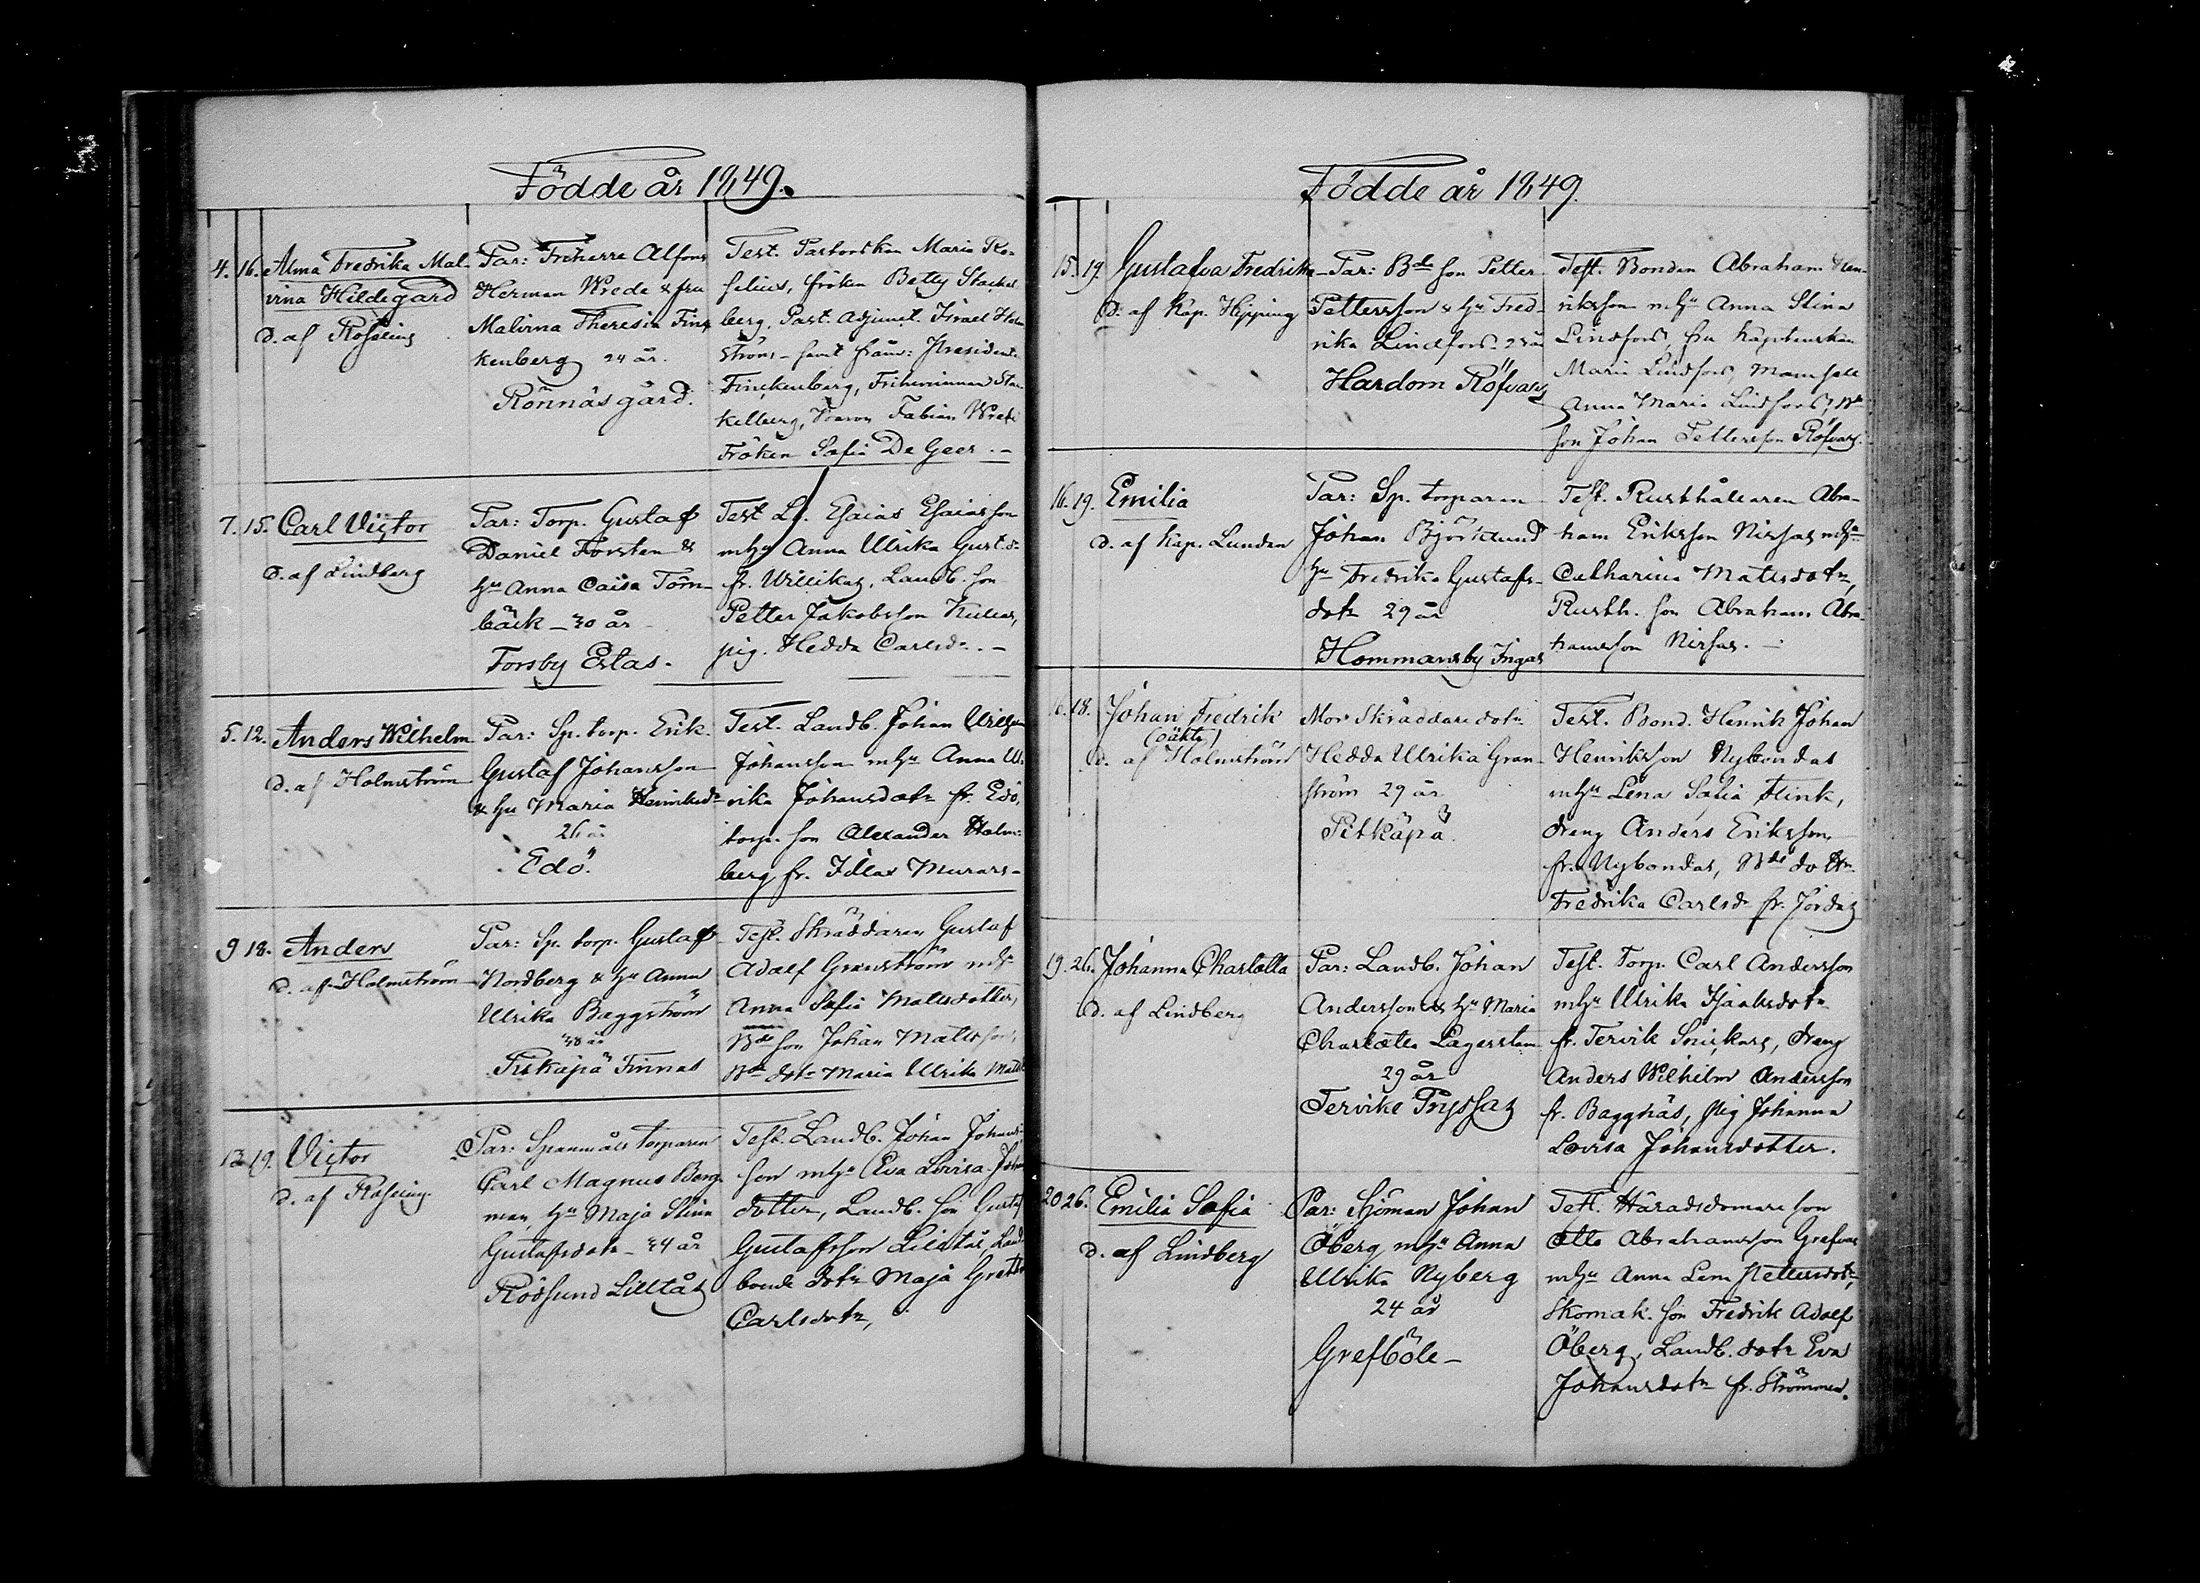 Födde år 1849.
4. 16. Alma Fredrika Mal-
vina Hildegard
d. af Roselius
Par: Friherre Alfons
Herman Wrede & fru
Malvina Theresia Finc
kenberg 24 år.
Rönnäs gård.
Test. Pastorskan Maria Ro-
selius, fröken Betty Stackel
berg, Past. Adjunct. Israel Holm
ström - samt frånv: President
Finckenberg, Friherrinnan Stac
kelberg, Baron Fabian Wrede
Fröken Sofia De Geer. -
7. 15. Carl Victor
d. af Lindberg
Par: Torp. Gustaf
Daniel Forsten &
hu Anna Caisa Törn-
bäck - 30 år -
Forsby Estas.
Test Lb. Esaias Esaiasson
mhu Anna Ulrika Gust.dr
fr. Willikas, Landb. son
Petter Jakobsson Kullas,
pig. Hedda Carlsdr. -
5. 12. Anders Wilhelm
d. af Holmström
Par: Sp. torp. Erik
Gustaf Johansson
& hu Maria Henriksdr
26 år
Edö.
Test. Landb. Johan Wilhelm
Johansson mhu Anna Ul-
rika Johansdotr fr. Edö,
torp. son Alexander Holm-
berg fr. Idlax Murars -
9 18. Anders
d. af Holmström
Par: Sp. torp. Gustaf
Nordberg & hu Anna
Ulrika Baggström
38 år
Pitkäpä Finnas
Test. Skräddaren Gustaf
Adolf Granström mhu
Anna Sofia Mattsdotter,
Bde son Johan Mattsson,
Bde dotr Maria Ulrika Mattsd
13 19. Victor
d. af Roselius
Par: Spanmåls torparen
Carl Magnus Berg-
man, hu Maja Stina
Gustafsdotr - 34 år
Rödsund Lilltås
Test. Landb. Johan Johans-
son mhu Eva Lovisa Johans
dotter, Landb. son Gustaf
Gustafsson Lilltås, Land
bonde dotr Maja Greta
Carlsdotr,
Födde år 1849.
15. 19. Gustafva Fredrika
d. af Kap. Hipping
Par: Bde son Petter
Pettersson & hu Fred-
rika Lindfors - 23 år
Hardom Röfvars
Test. Bonden Abraham Hen-
riksson mhu Anna Stina
Lindfors, fru Kaptenskan
Maria Lindfors, Mamsell
Anna Maria Lindfors, Bde
son Johan Pettersson Röfvars.
16. 19. Emilia
d. af Kap. Lunden
Par: Sp. torparen
Johan Björklund
hu Fredrika Gustafs-
dotr 29 år
Hommansby Ingas
Test. Rusthållaren Abra-
ham Eriksson Nissas mhu
Catharina Mattsdotr,
Rusth. son Abraham Abra-
hamsson Nissas. -
18. Johan Fredrik
(oäkta)
d. af Holmström
Mor Skräddare dotr
Hedda Ulrika Gran-
ström 29 år
Pitkäpä.
Test. Bond. Henrik Johan
Henriksson Nybondas
mhu Lena Sofia Flink,
dreng Anders Eriksson
fr. Nybondas, Bde dottr
Fredrika Carlsdr fr. Jordas
19. 26. Johanna Charlotta
d. af Lindberg
Par: Landb. Johan
Andersson & hu Maria
Charlotta Lagerstam
29 år
Tervike Pryssas
Test. Torp. Carl Andersson
mhu Ulrika Isaksdotr
fr. Tervik Snickars, dreng
Anders Wilhelm Andersson
fr. Baggnäs, pig Johanna
Lovisa Johansdotter.
20 26. Emilia Sofia
d. af Lindberg
Par: Sjöman Johan
Öberg, mhu Anna
Ulrika Nyberg
24 år
Grefböle -
Test. Häradsdomare son
Otto Abrahamsson Grefvas
mhu Anna Lena Pettersdotr,
Skomak. son Fredrik Adolf
Öberg, Landb. dotr Eva
Johansdotr fr. Strömmen.